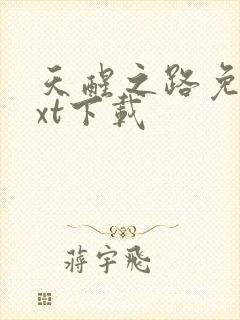 天醒之路免
xt下载
蒋宇飛